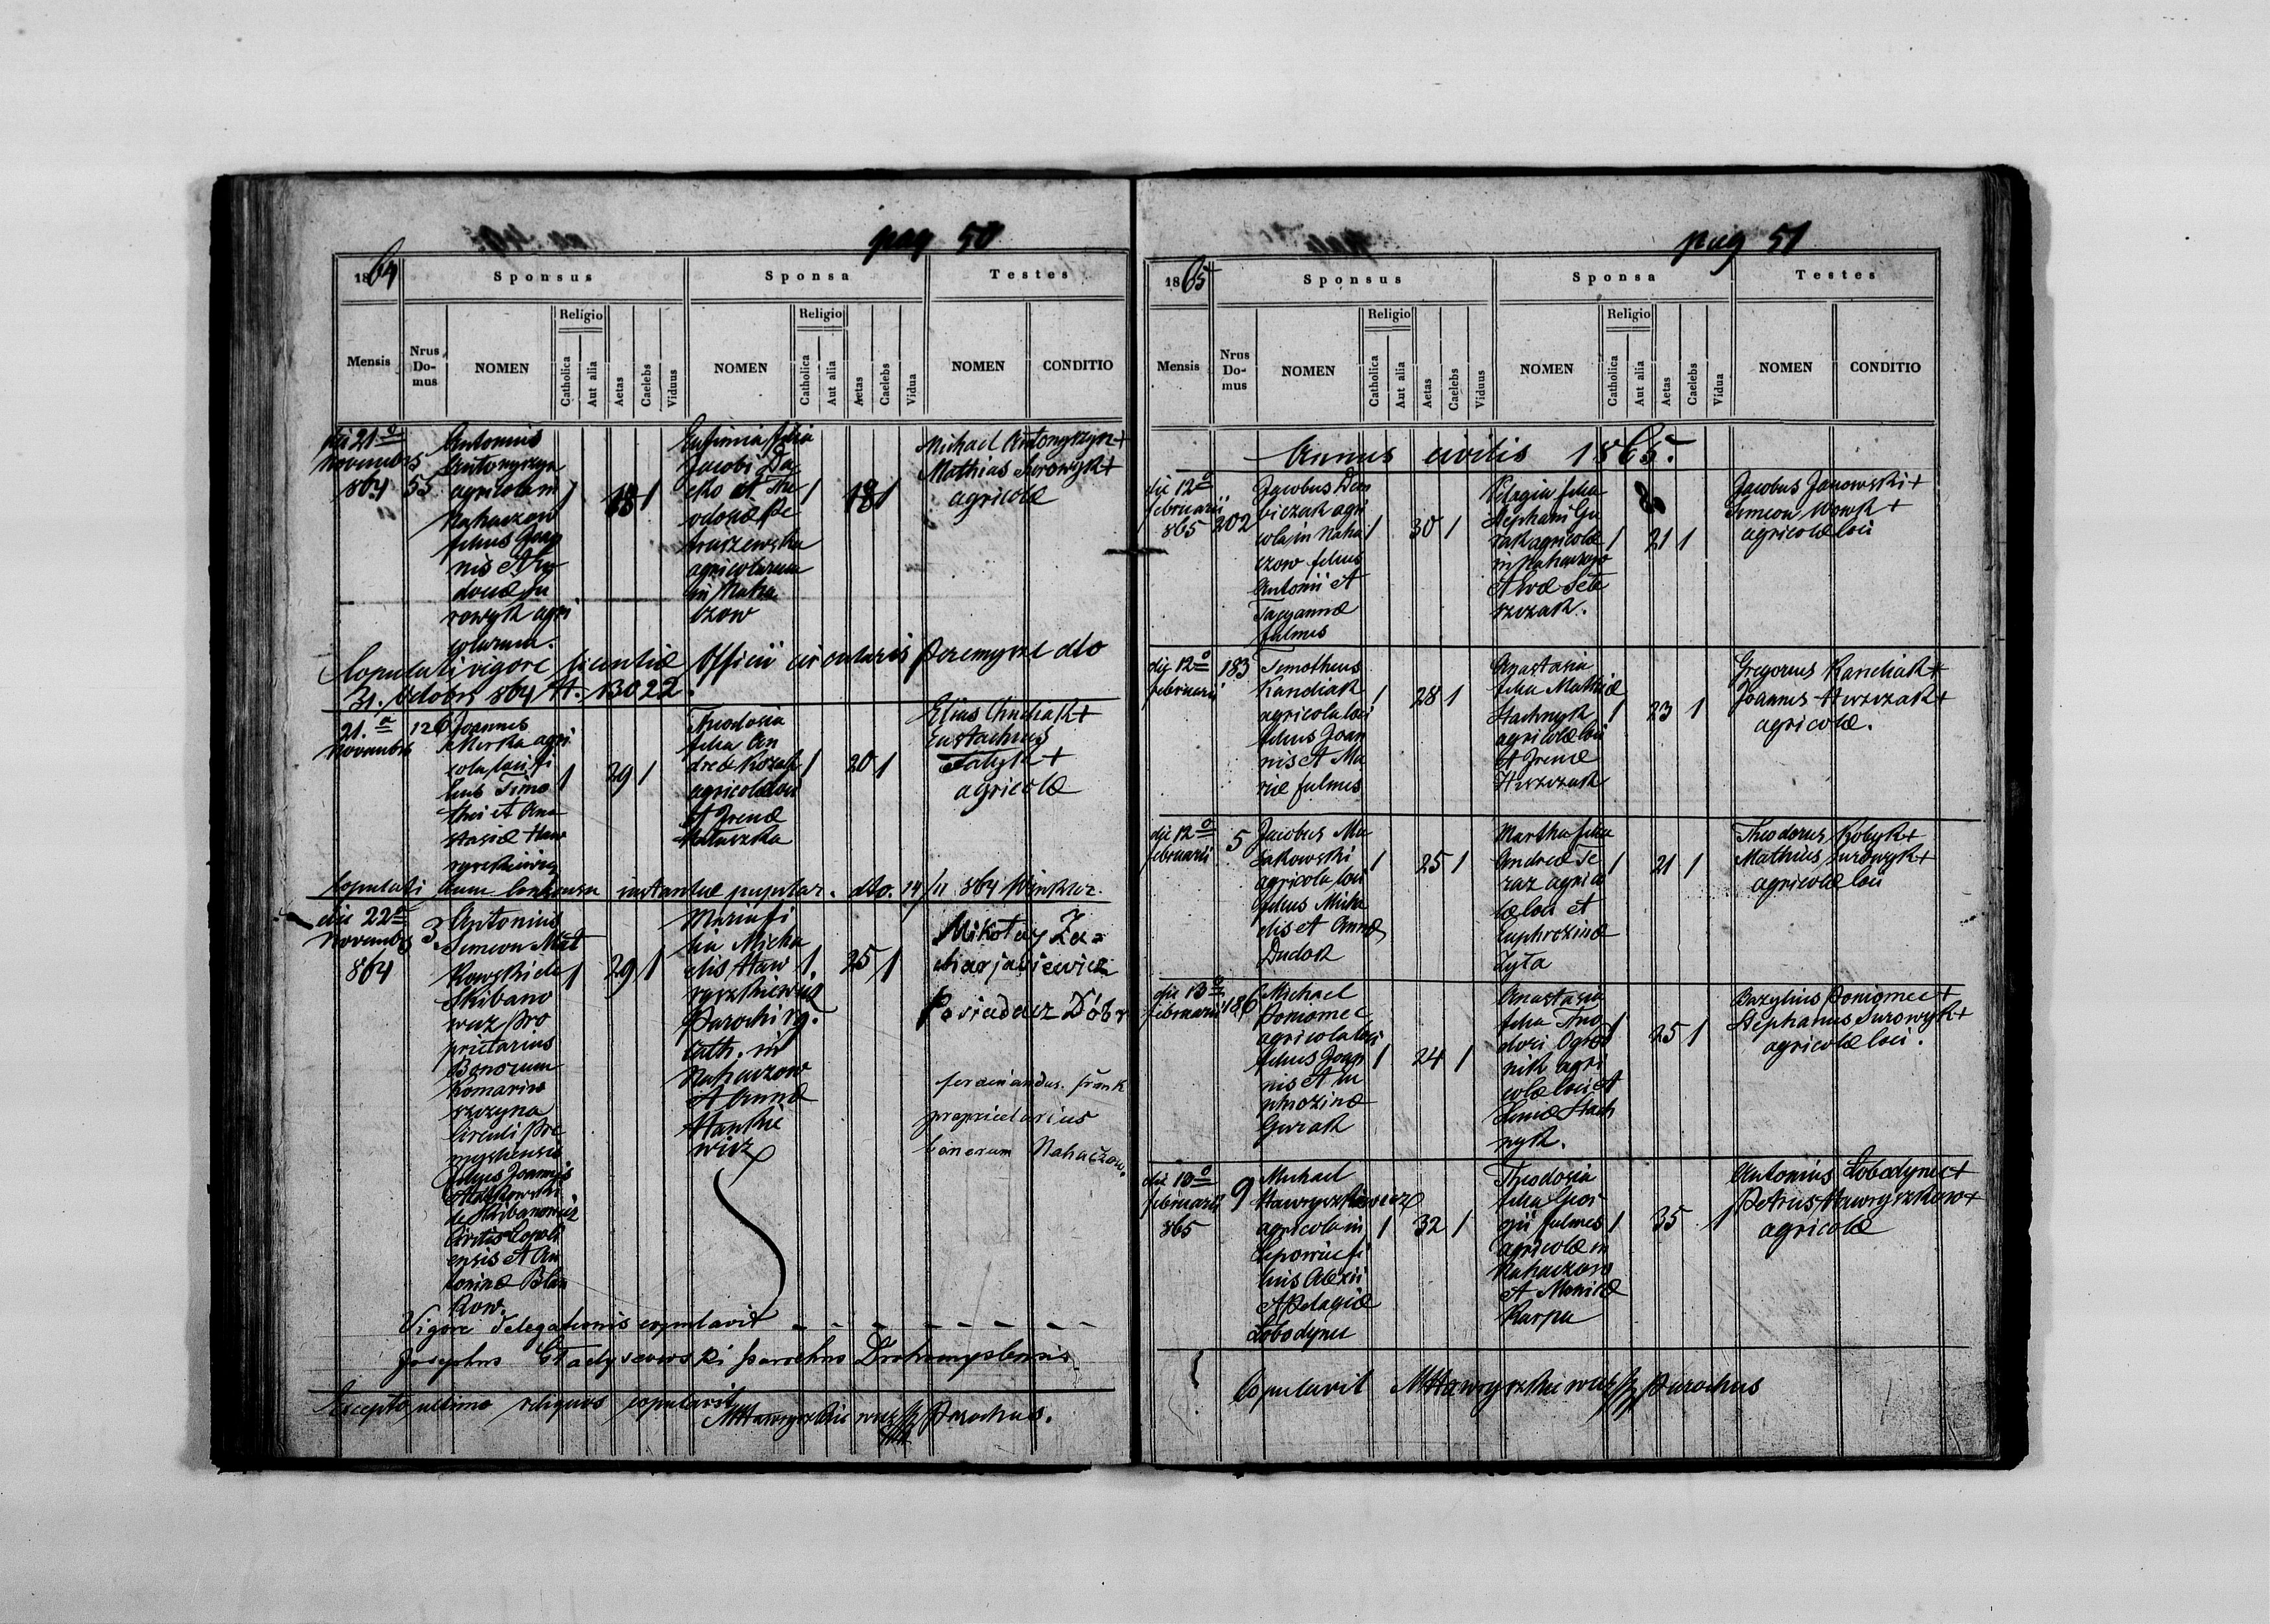 pag 50
1864
Sponsus
Sponsa
Testes
Mensis
Nrus Domus
NOMEN
Religio
Catholica
Aut alia
Aetas
Caelebs
Viduus
NOMEN
Religio
Catholica
Aut alia
Aetas
Caelebs
Vidua
NOMEN
CONDITIO
die 21a
Novembris
864
55
Antonius
Antonyszyn
agricola in
Nahaczow
filius Joan
nis et
rowyk agri
colarum.
1
18
1
Eufimia filia
Jacobi Da
cko et The
odosiæ Pe
truszewska
agricolarum
in Naha
czow
1
18
1
Michael Antonyszyn +
Mathias Surowyk +
agricolæ
Copulati vigore licentiæ Officii circularis Peremysl dto
31. Octobr 864 N. 13022.
21.a
Novembris
126
Joannes
Sikirka agri
cola loci fi
lius Timo
thei et Ana
stasiæ Haw
ryszkiewicz
1
29
1
Theodosia
filia An
dreæ Kozak
agricolæ loci
et Irenæ
Matuszka
1
20
1
Elias Chudiak +
Eustachius
Fatyk +
agricolæ
Copulati cum consensu instantiæ pupilar. dto. 14/11 864
die 22a
Novembris
864
3
Antonius
Simeon Mał
kowski de
Skibano
wicz pro
prietarius
Bonorum
Komarow
szczyna
Circuli Pre
mysliensis
filius Joannis
Małkowski
de Skibanowicz
Civitis Leopoli
ensis et An
toninæ Blan
kow.
1
29
1
Maria fi
lia Micha
elis Haw
ryszkiewicz
Parochi rg.
cath. in
Nahaczow
et Annæ
Hankie
wicz
1.
25
1
Mikołay Za=
charjasiewicz
Posiadacz Dóbr
ferdinandus. frank
proprietarius
bonorum Nahaczow.
Vigore Delegationis copulavit
Josephus Gładyszowski parochus Drohomyslensis
Excepto ultimo reliquos copulavit
MHawryszkiewicz parochus.
pag 51
1865
Sponsus
Sponsa
Testes
Mensis
Nrus Domus
NOMEN
Religio
Catholica
Aut alia
Aetas
Caelebs
Viduus
NOMEN
Religio
Catholica
Aut alia
Aetas
Caelebs
Vidua
NOMEN
CONDITIO
Annus civilis 1865.
die 12o
februarii
865
202
Jacobus Dem
biczak agri
cola in Naha
czow filius
Antonii et
Tacyannæ
fulmes
1
30
1
Pelagia filia
Stephani Gu
rak agricolæ
in Nahaczow
et Evæ Seta
szczak.
1
21
1
Jacobus Janowski +
Simeon Wowk +
agricolæ loci
die 12o
februarii
183
Timotheus
Kandiak
agricola loci
filius Joan
nis et Ma
riæ fulmes
1
28
1
Anastasia
filia Mathiæ
Stachnyk
agricolæ loci
et Irenæ
Hrszczak
1
23
1
Gregorius Kandiak +
Joannes Hrszczak +
agricolæ.
die 12o
februarii
5
Jacobus Ma
jakowski
agricola loci
filius Micha
elis et Annæ
Dudok
1
25
1
Martha filia
Andreæ Te
raz agrico
læ loci et
Euphrozinæ
Zyła
1
21
1
Theodorus Kobyk +
Mathias Surowyk +
agricolæ loci
die 13a
februarii
186
Michael
Poniomec
agricola loci
filius Joan
nis et Eu
phrozinæ
Gurak
1
24
1
Anastasia
filia Theo
dori Ogrod
nik agri
colæ loci et
Stach
nyk.
1
25
1
Bazylius Poniomec +
Stephanus Surowyk +
agricolæ loci.
die 13o
februarii
865
9
Michael
Hawryszkiewicz
agricola in
Lipowiec fi
lius Alexii
et Pelagiæ
Łobodynec
1
32
1
Theodosia
filia Geor
gii fulmes
agricolæ in
Nahaczow
et Mariæ
Karpa
1
35
1
Antonius Łobodynec +
Petrus Hawryszkow +
agricolæ
Copulavit MHawryszkiewicz parochus